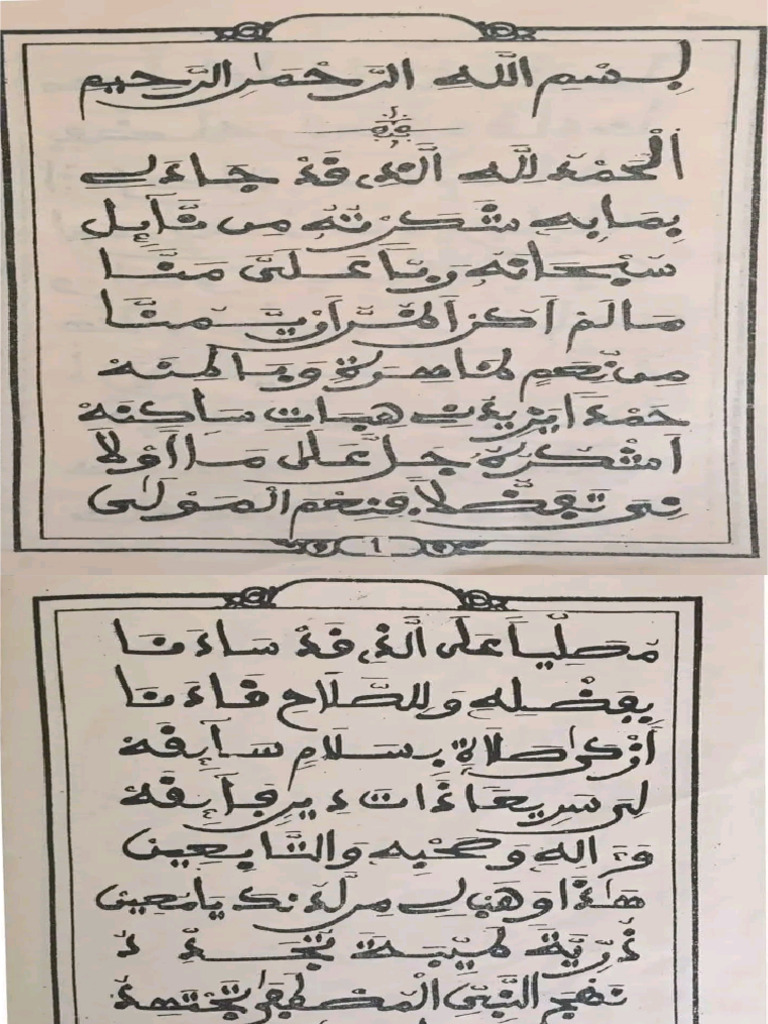 بِسْمِ اللَّهِ الرَّحْمَنِ الرَّحِيمِ
الْحَمْدُ لِلَّهِ الَّذِي قَدْ جَاءَ لِي
بِمَا بِهِ شَكَرْتُهُ مِن قَآئِلِ
سُبْحَانَهُ رَبًّا عَلَيَّ مَنَّا
مَا لَمْ أَكُنْ الْقُرْآنَ يَتَمَنَّا
مِن نِّعَمٍ ظَاهِرَةٍ وَبَاطِنَهْ
حَمْدًا يَزِيدُ هِبَاتٍ سَاكِنَهْ
أَشْكُرُهُ جَلَّ عَلَى مَا أَوْلَى
لِي تَفَضُّلًا فَنِعْمَ الْمَوْلَى
1
مُصَلِّيًا عَلَى الَّذِي قَدْ سَاءَنَا
بِفَضْلِهِ وَلِلصَّلَاحِ قَاءَنَا
أَزْكَى صَلَاةٍ بِسَلَامٍ سَآئِقَهْ
لِي سَرِيعًا ذَاتَ دِينٍ فَآئِقَهْ
وَءَالِهِ وَصَحْبِهِ وَالتَّابِعِينْ
هَذَا وَهَبْ لِي مِن لَّدُنكَ يَا مُعِينْ
ذُرِّيَّةً طَيِّبَةً
نَهْجَ النَّبِيِّ الْمُصْطَفَى